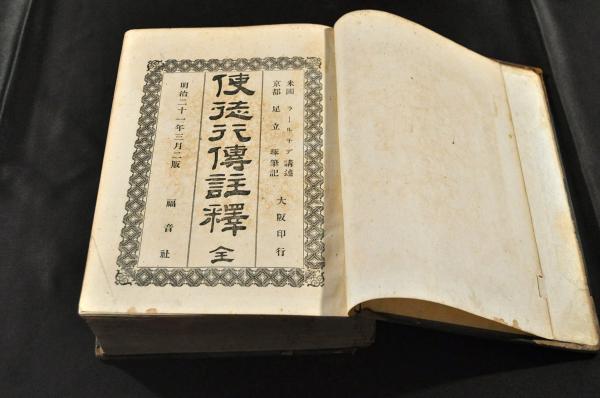 米國 ラールネデ 講述
京都 足立 琢 筆記
大阪印行
使徒行傳註釋 全
明治二十一年三月二版
福音社